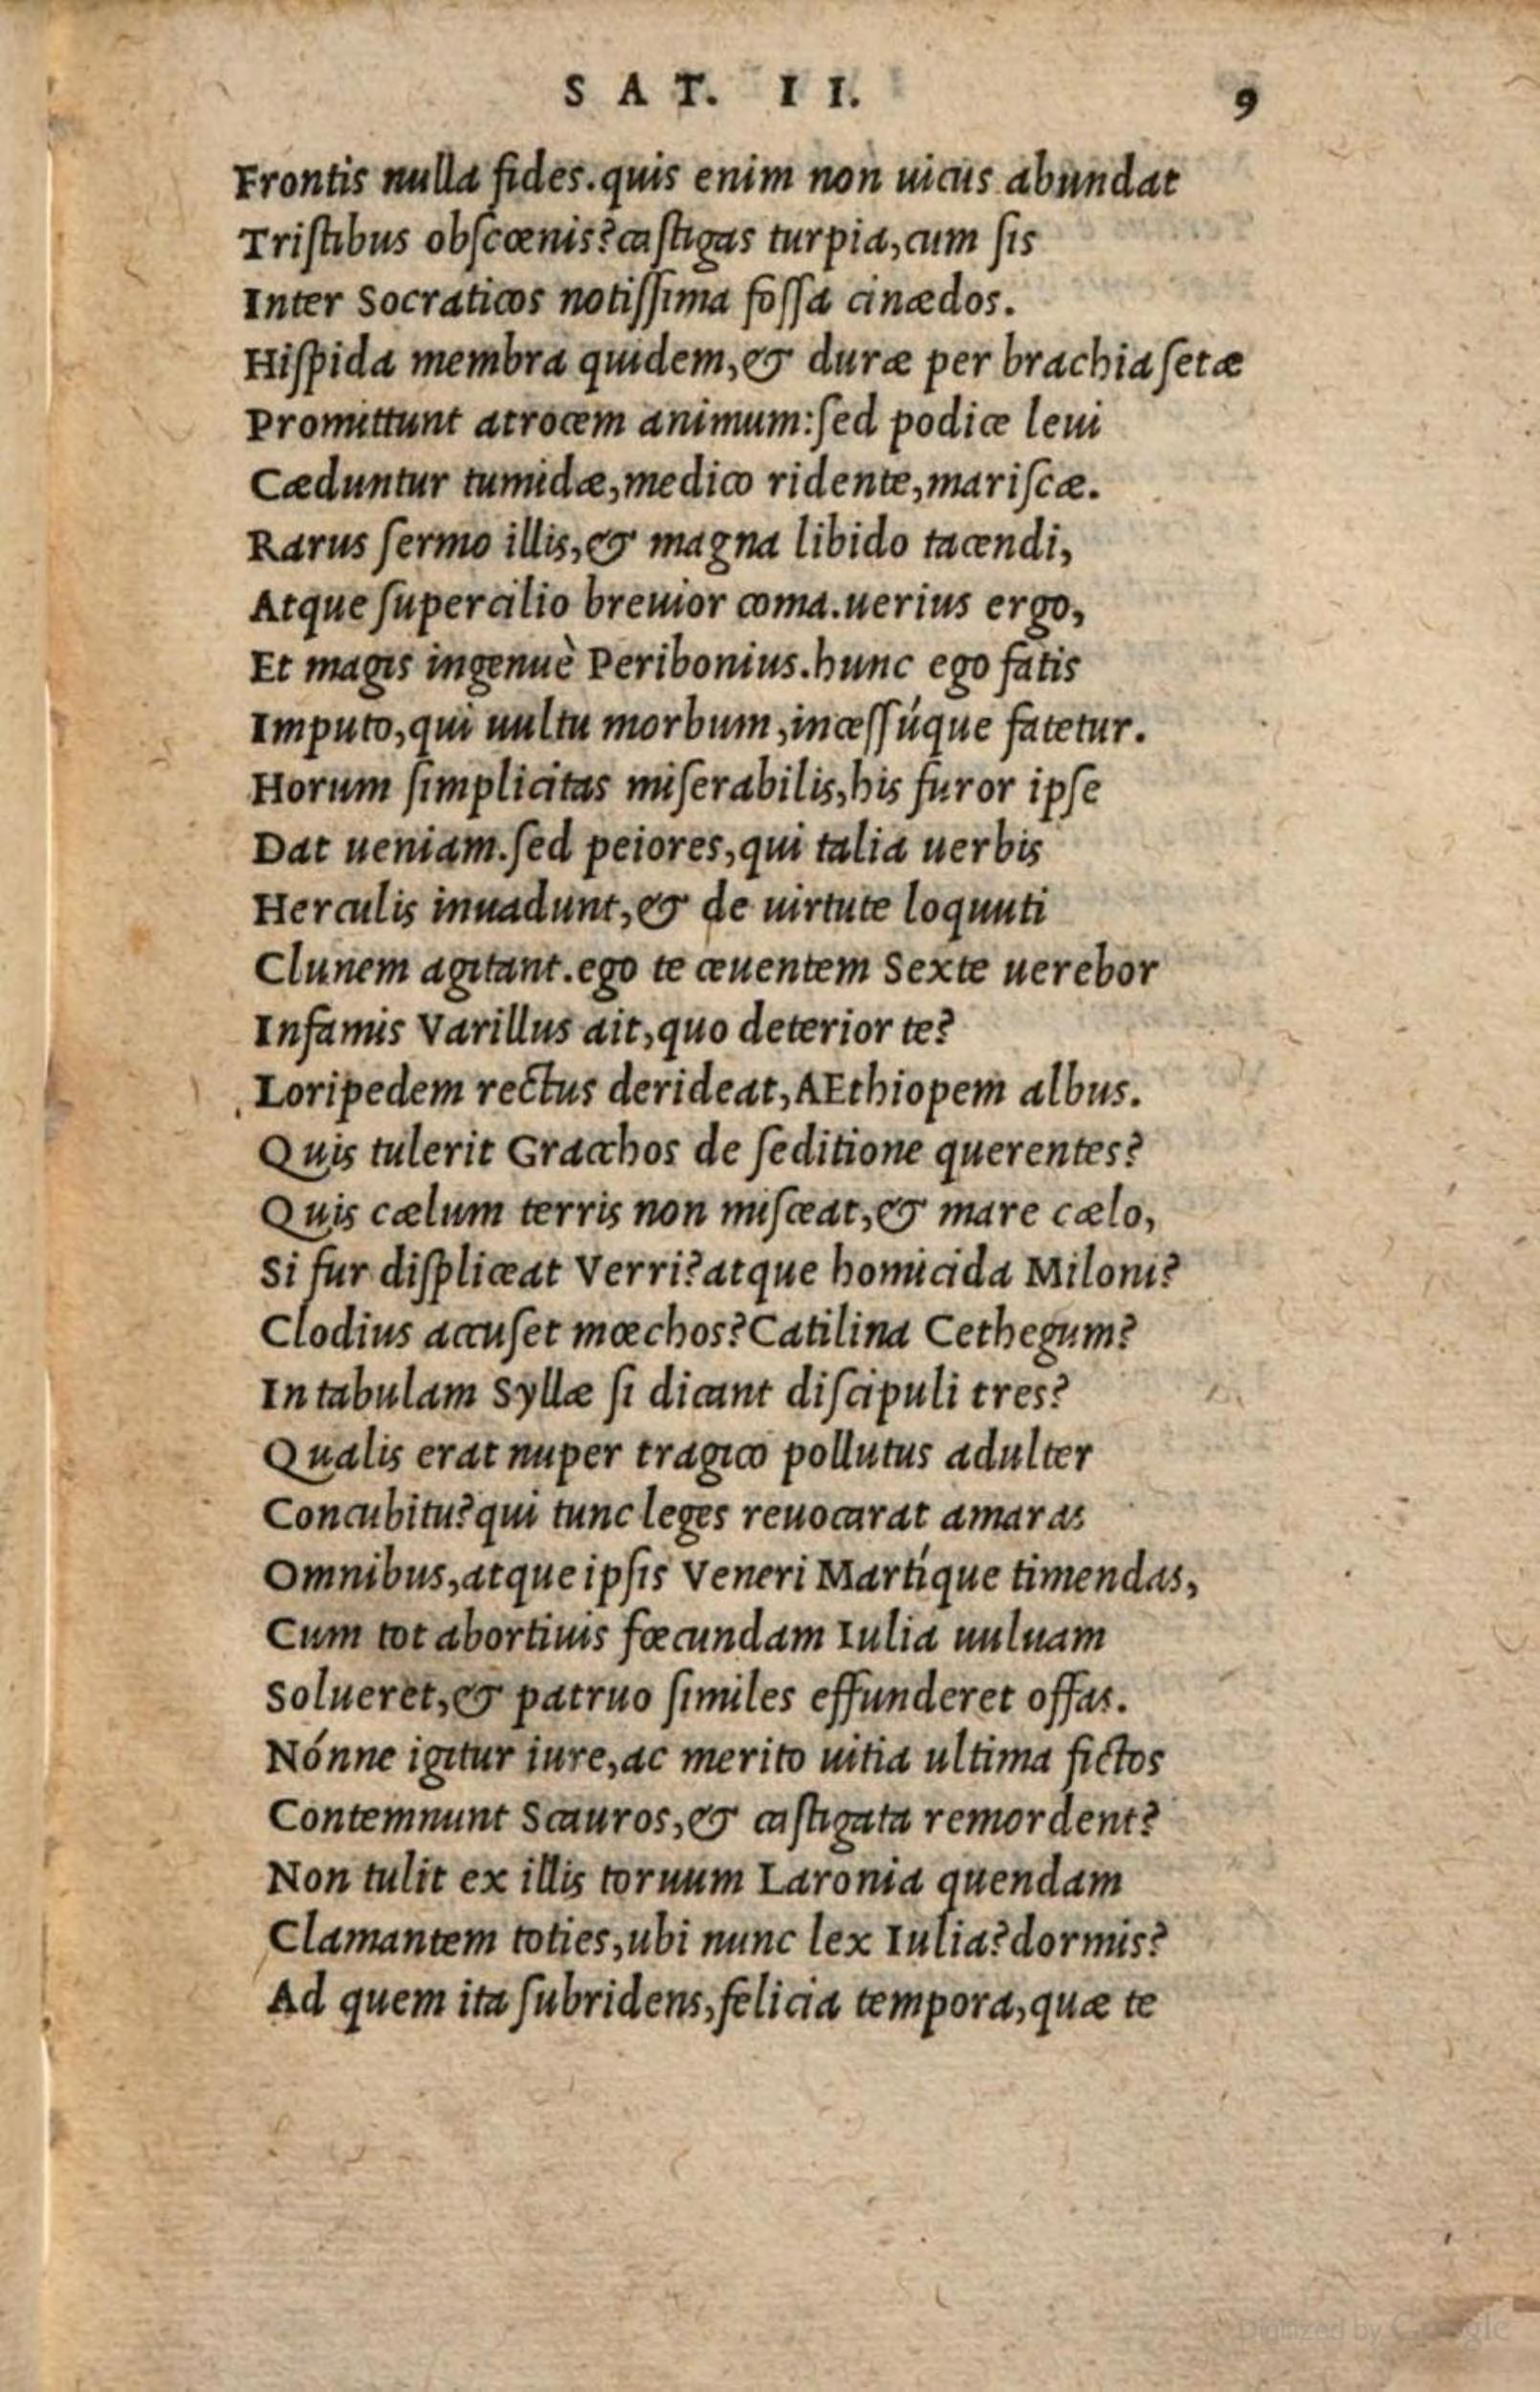 SAT. II. 9
Frontis nulla fides.quis enim non uicus abundat
Tristibus obscœnis?castigas turpia,cum sis
Inter Socraticos notissima fossa cinædos.
Hispida membra quidem,& duræ per brachia setæ
Promittunt atrocem animum:sed podice leui
Cæduntur tumidæ,medico ridente,mariscæ.
Rarus sermo illis,& magna libido tacendi,
Atque supercilio breuior coma.uerius ergo,
Et magis ingenuè Peribonius.hunc ego fatis
Imputo,qui uultu morbum,incessúque fatetur.
Horum simplicitas miserabilis,his furor ipse
Dat ueniam.sed peiores,qui talia uerbis
Herculis inuadunt,& de uirtute loquuti
Clunem agitant.ego te ceuentem Sexte uerebor
Infamis Varillus ait,quo deterior te?
Loripedem rectus derideat,AEthiopem albus.
Quis tulerit Gracchos de seditione querentes?
Quis cælum terris non misceat,& mare cælo,
Si fur displiceat Verri?atque homicida Miloni?
Clodius accuset mœchos?Catilina Cethegum?
In tabulam Syllæ si dicant discipuli tres?
Qualis erat nuper tragico pollutus adulter
Concubitu?qui tunc leges reuocarat amaras
Omnibus,atque ipsis Veneri Martíque timendas,
Cum tot abortiuis fœcundam Iulia uuluam
Solueret,& patruo similes effunderet offas.
Nónne igitur iure,ac merito uitia ultima fictos
Contemnunt Scauros,& castigata remordent?
Non tulit ex illis toruum Laronia quendam
Clamantem toties,ubi nunc lex Iulia?dormis?
Ad quem ita subridens,felicia tempora,quæ te
Digitized by Google